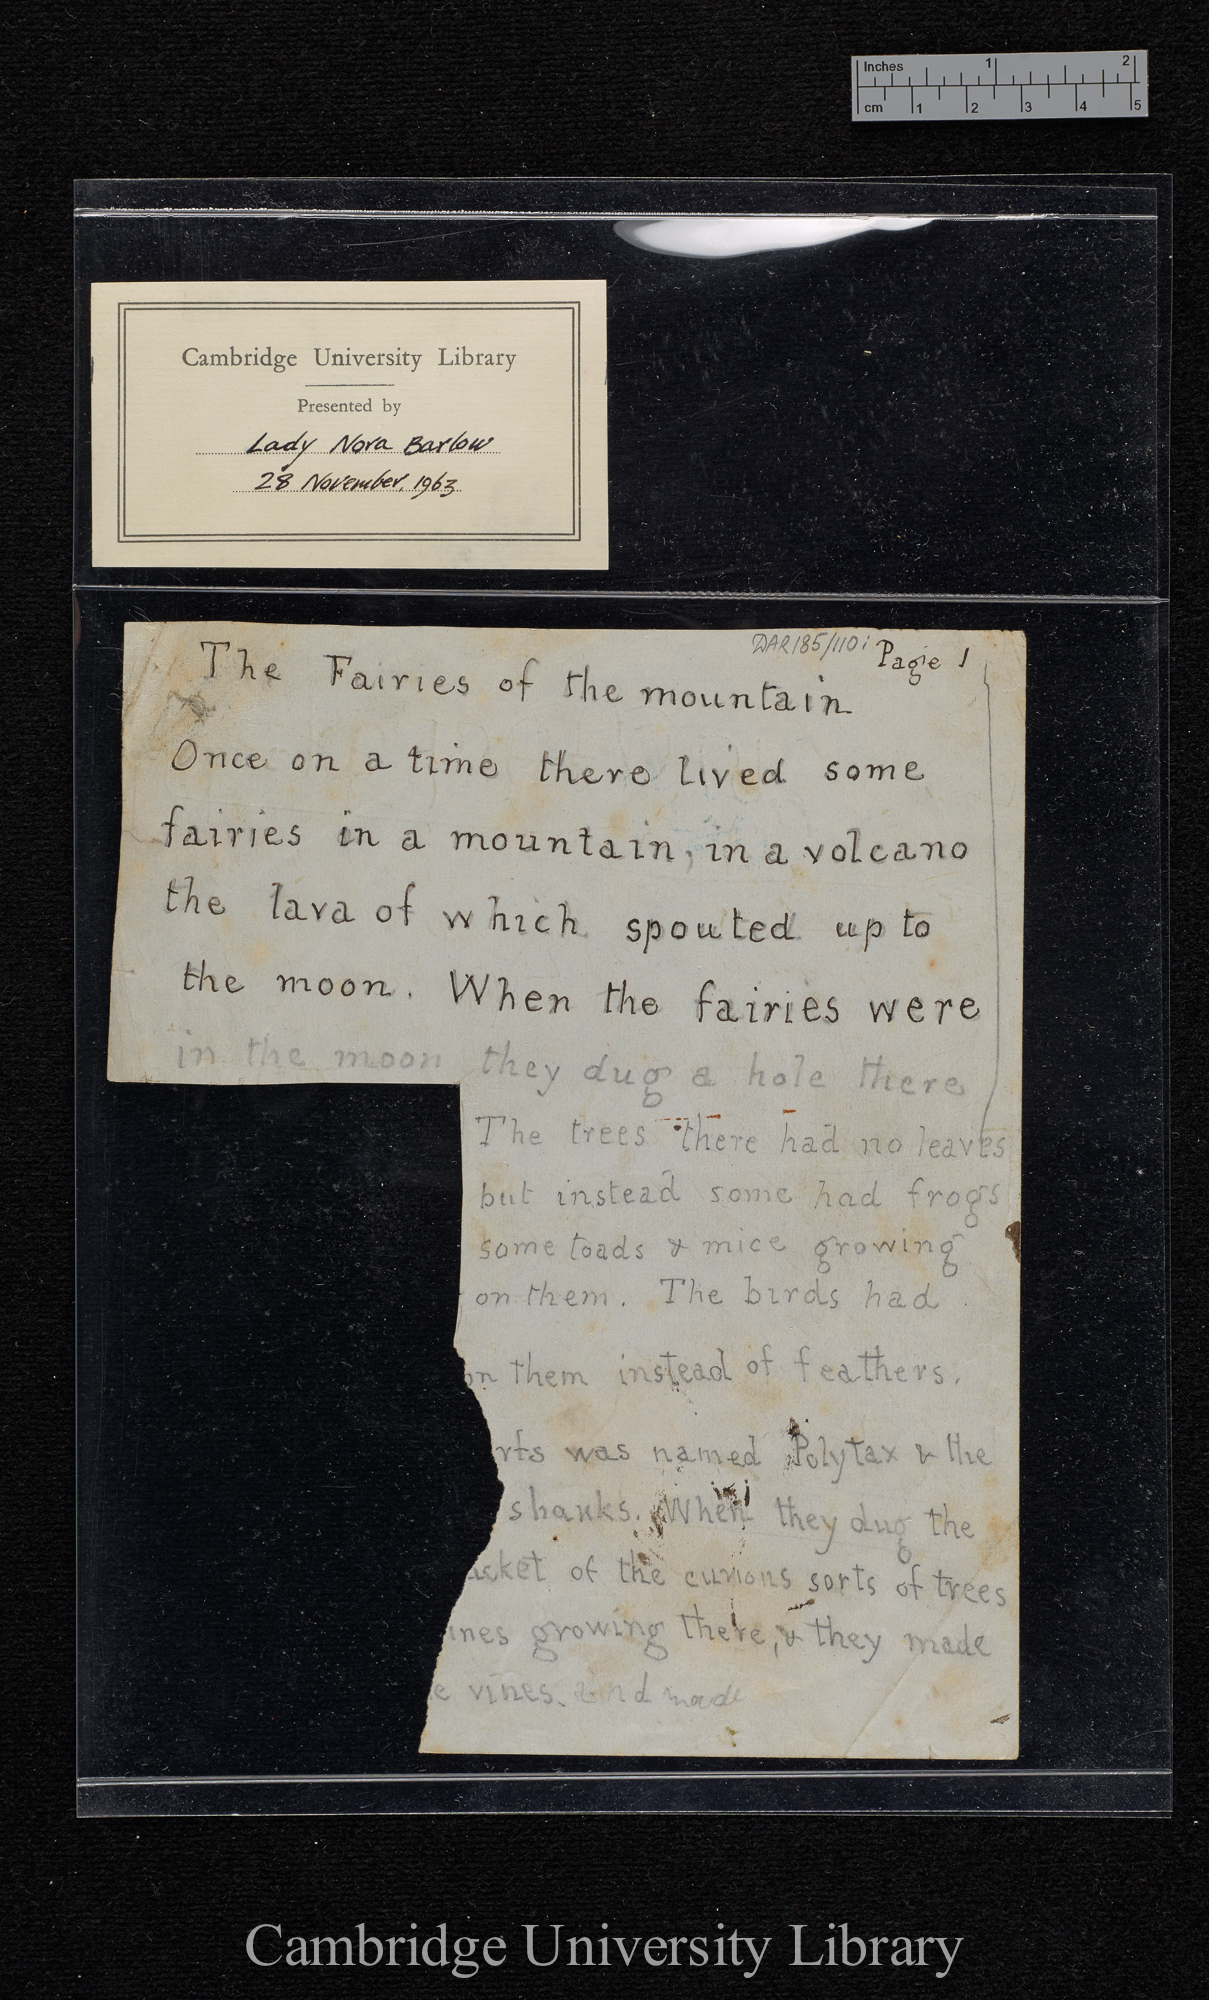 Inches 1 2
cm 1 2 3 4 5
Cambridge University Library
Presented by
Lady Nora Barlow
28 November. 1963
DAR185/110i Page 1
The Fairies of the mountain
Once on a time there lived some
fairies in a mountain, in a volcano
the lava of which spouted up to
the moon. When the fairies were
in the moon they dug a hole there
The trees there had no leaves
but instead some had frogs
some toads & mice growing
on them. The birds had
on them instead of feathers.
rts was named Polytax & the
shanks. When they dug the
acket of the curious sorts of trees
ines growing there, & they made
e vines. and made
Cambridge University Library